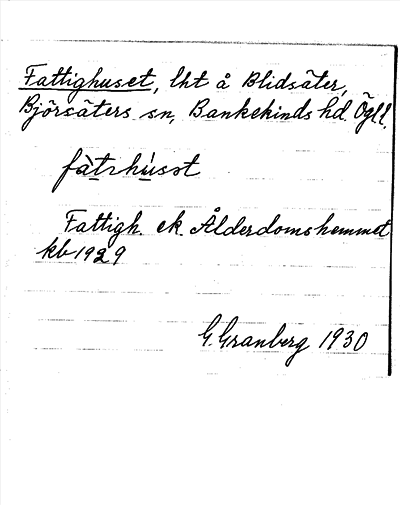 Fattighuset, lht å Blidsäter,
Björsäters sn, Bankekinds hd. Ögl.
Fattigh. ek. Ålderdomshemmet
kb 1929
G. Granberg 1930